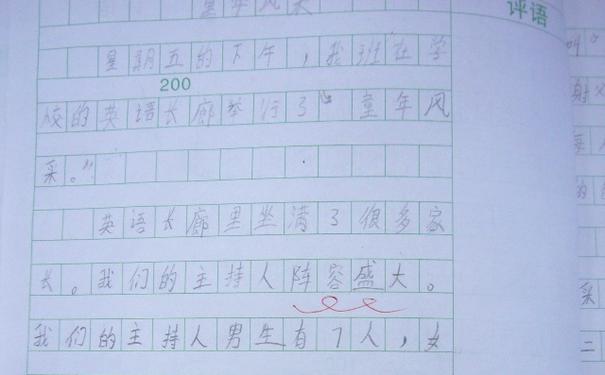 童年风采
评语
星期五的下午，我班在学
200
校的英语长廊举行了“童年风
采。”
英语长廊里坐满了很多家
长。我们的主持人阵容盛大。
我们的主持人男生有7人，女